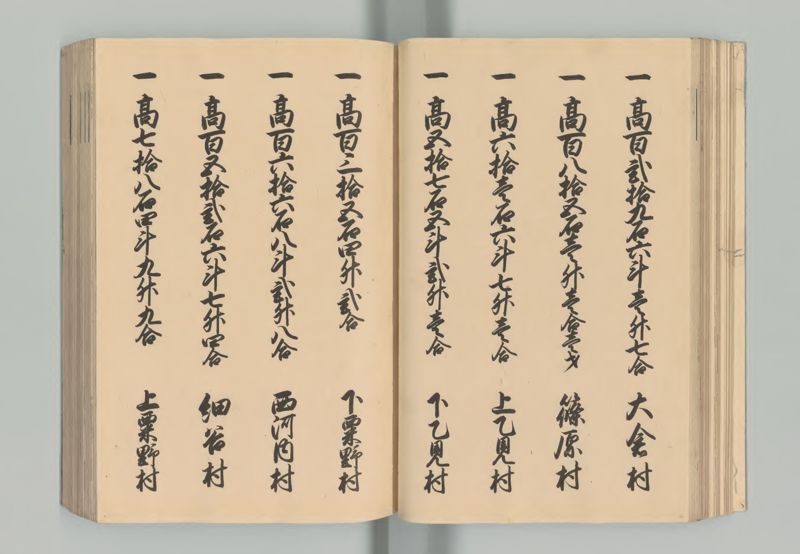 一 高百弐拾九石六斗壱升七合 大倉村
一 高百八拾五石壱升壱合壱才 篠原村
一 高六拾壱石六斗七升壱合 上乙見村
一 高五拾七石五斗弐升壱合 下乙見村
一 高百三拾五石四升弐合 下粟野村
一 高百六拾六石八斗弐升八合 西河内村
一 高百五拾弐石六斗七升四合 細谷村
一 高七拾八石四斗九升九合 上粟野村